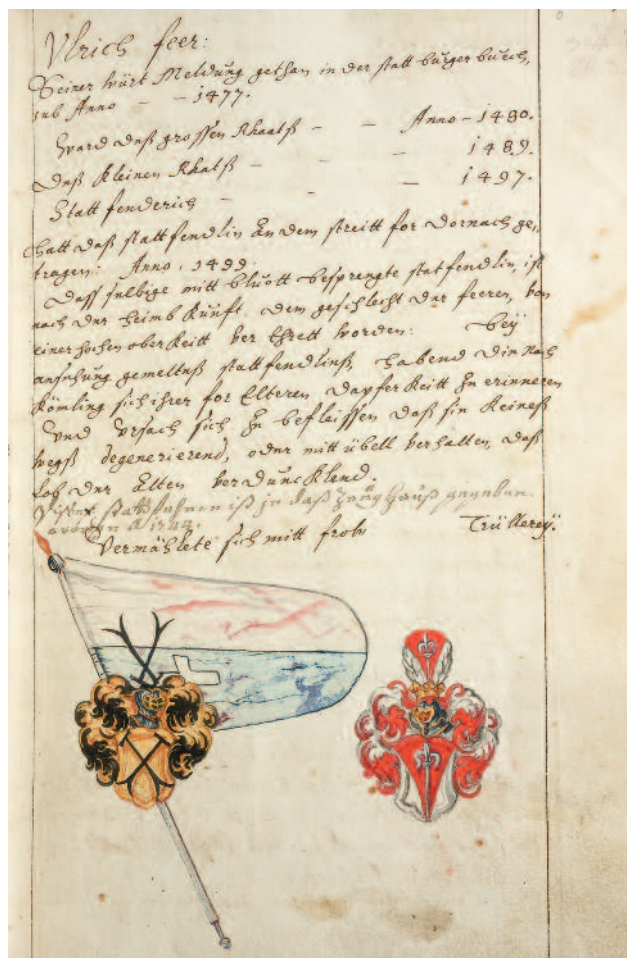 Vlrich feer:
Seiner würt Meldung gethan in der statt burger buech,
sub Anno - - 1477.
Ward deß grossen Rhaatß - - Anno - 1480.
Deß Kleinen Rhatß - - 1489.
Statt fenderich - - - 1497.
Hatt daß stattfendlin An dem streitt for Dornach ge-
tragen: Anno. 1499.
Dass selbige mitt bluott besprengte statfendlin, ist
nach der heimb Kunfft dem geschlecht der feeren, von
einer hochen ober Keitt ver Ehrett worden: bey
ansehung gemeltneß stattfendlinß, habend die Nach
Kömling sich ihrer for Elteren dapfer Keitt zu erinneren
vnd vrsach sich zu befleissen daß sie Keineß
wegß degenerierend, oder mitt übell verhalten, daß
Lob der Alten verduncklend.
statt fahnen ist jn daß Züghauß gegeben
worden A 1744.
Vermählete sich mitt frow Trüllereÿ.